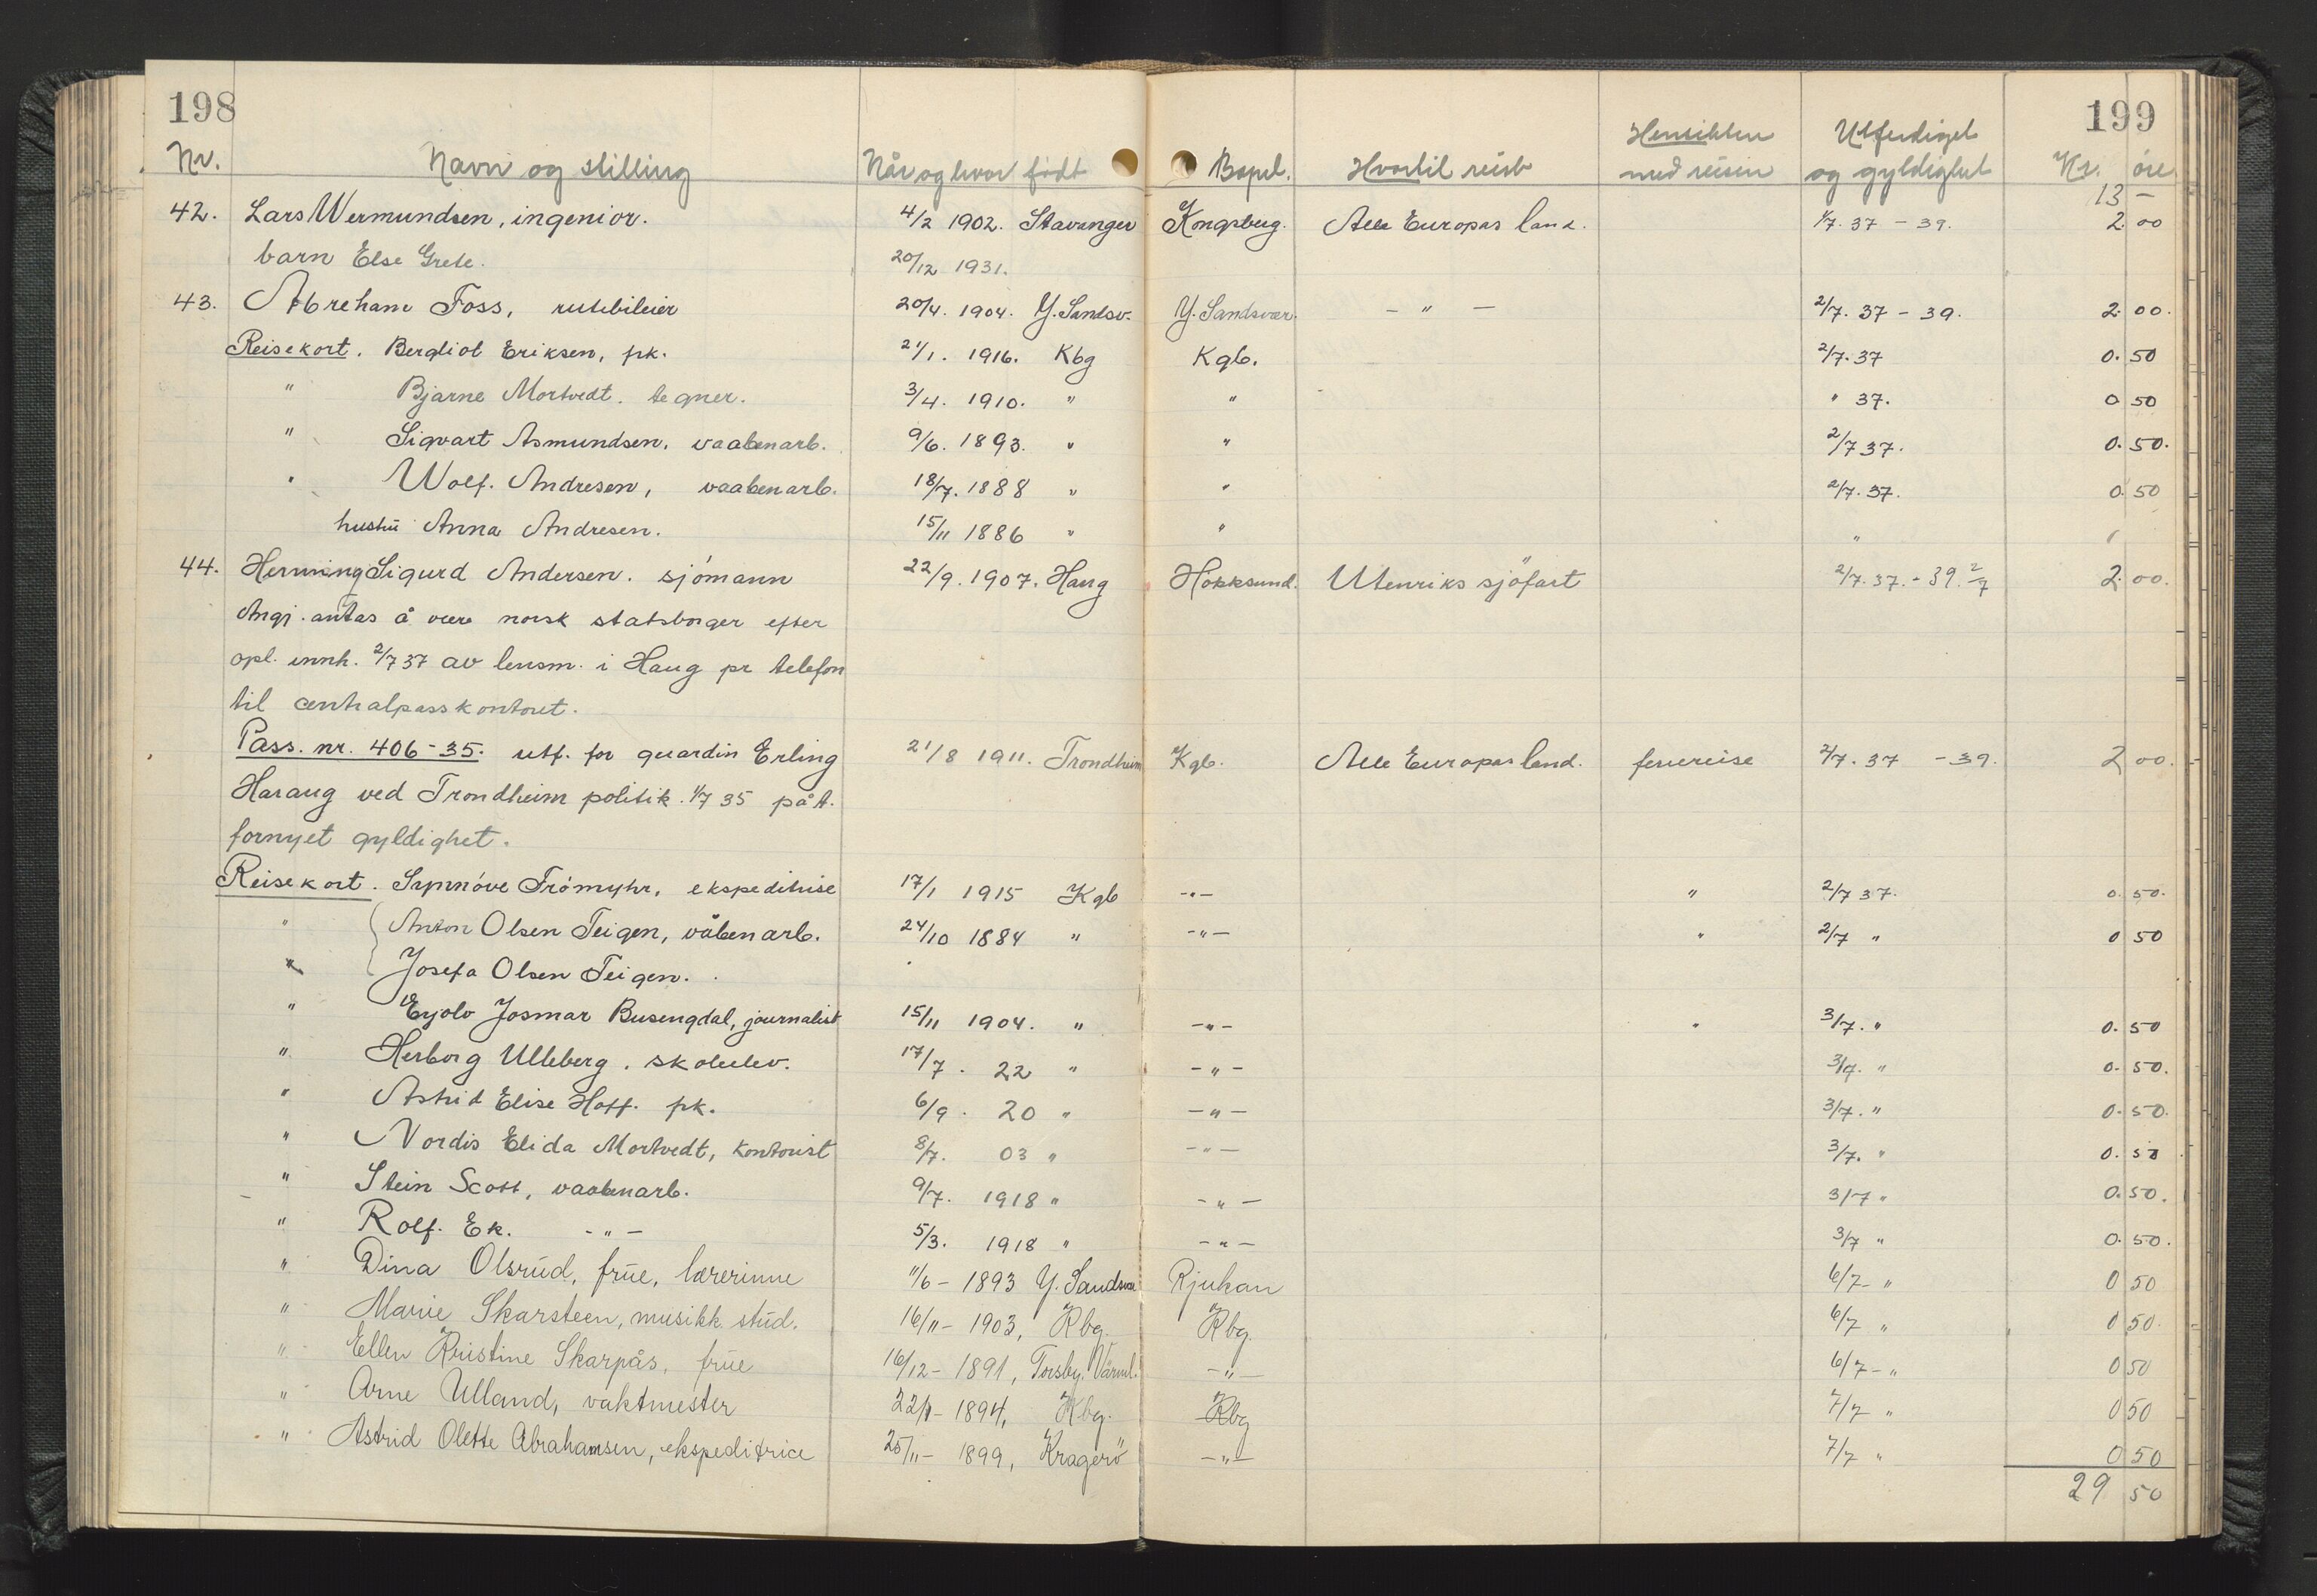 198
199
Nr. Navn og stilling Når og hvor født Bopel. Hvortil reise Hensikten med reisen Utferdiget og gyldighet Kr. øre
13 –
42. Lars Wermundsen, ingeniør. 4/2 1902. Stavanger Kongsberg. Alle Europas land. 1/7. 37 – 39. 2.00
barn Else Grete. 20/12 1931.
43. Abreham Foss, rutebileier 20/4. 1904. Y. Sandsv. Y. Sandsvær. – " – 2/7. 37 – 39. 2.00.
Reisekort. Bergliot Eriksen, pk. 21/1. 1916. Kbg Kgb. 2/7. 37 0.50
" Bjarne Mortvedt. tegner. 3/4. 1910. " " " 37. 0 50
" Sigvart Asmundsen, vaabenarb. 9/6. 1893. " " 2/7 37. 0.50.
" Wolf. Andresen, vaabenarb. 18/7. 1888 " " 2/7. 37. 0.50
hustru Anna Andresen. 15/11 1886 " " "
44. Henning Sigurd Andersen. sjömann 22/9. 1907. Haug Hokksund. Utenriks sjöfart 2/7. 37. – 39. 2/7 2.00.
Angj. antas å være norsk statsborger efter
opl. innh. 2/7 37 av lensm. i Haug pr telefon
til centralpasskontoret.
Pass. nr. 406-35. utf. for guardin Erling 21/8 1911. Trondheim Kgb. Alle Europas land. feriereise 2/7. 37 – 39. 2 00.
Haraug ved Trondheim politik. 1/7 35 påt.
fornyet gyldighet.
Reisekort. Synnöve Frömyhr, ekspeditrise 17/1 1915 Kgb –"– " 2/7 37. 0.50.
" Anton Olsen Teigen, våbenarb. 24/10 1884 " –"– " 2/7 " 0 50
" Josefa Olsen Teigen.
" Eyolv Josmar Busengdal, journalist 15/11 1904. " –"– " 3/7. " 0.50
" Herborg Ulleberg. skoleelev. 17/7. 22 " –"– 3/7. " 0.50.
" Astrid Elise Hoff. pk. 6/9. 20 " –"– 3/7. " 0.50.
" Nordis Elida Mortvedt, kontorist 8/7. 03 " –"– 3/7. " 0.50
" Stein Scott, vaabenarb. 9/7. 1918 " –"– 3/7 " 0.50.
" Rolf. Ek. –"– 5/3. 1918 " –"– 3/7 " 0.50.
" Dina Olsrud, frue, lærerinne 11/6 – 1893 Y. Sandsvær Rjukan 6/7 – " 0 50
" Marie Skarsteen, musikk stud. 16/11 – 1903, Kbg. Kbg. 6/7 " 0 50.
" Ellen Kristine Skarpås, frue 16/12 – 1891, Torsby, Värml. –"– 6/7 – " 0 50
" Arne Ulland, vaktmester 22/1 – 1894, Kbg. Kbg 7/7 " 0 50
" Astrid Olette Abrahamsen, ekspeditrice 25/11 – 1899, Kragerö –"– 7/7 " 0 50
29 50